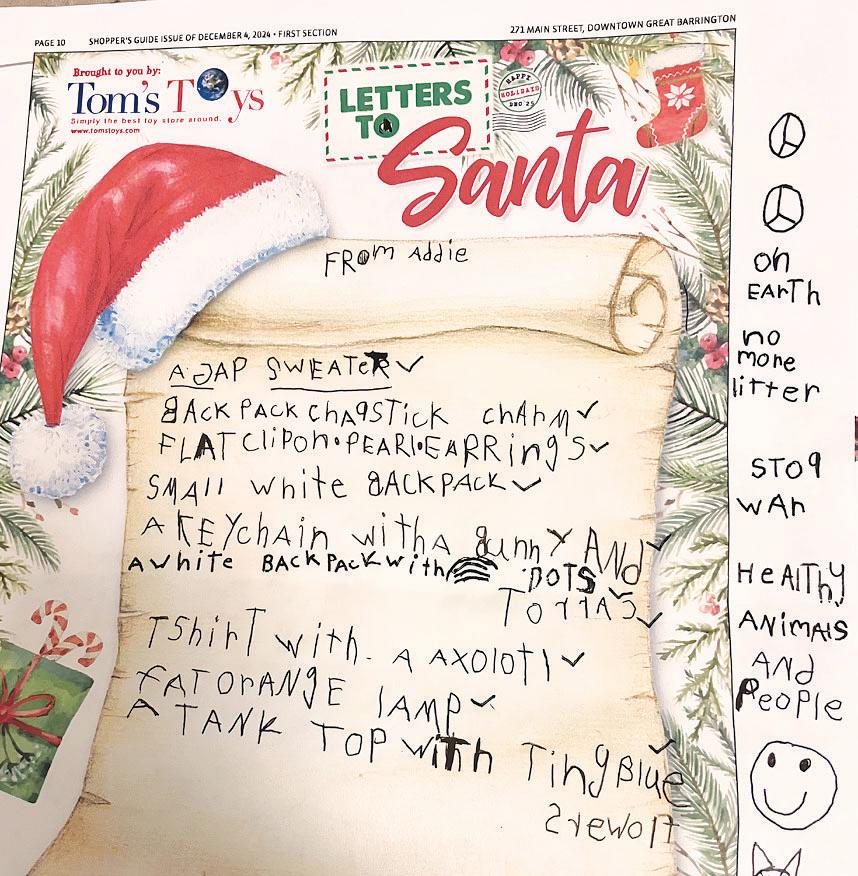 PAGE 10 SHOPPER'S GUIDE ISSUE OF DECEMBER 4, 2024 • FIRST SECTION
271 MAIN STREET, DOWNTOWN GREAT BARRINGTON
Brought to you by:
Tom's Toys
Simply the best toy store around.
www.tomstoys.com
LETTERS
TO
Santa
HAPPY
HOLIDAYS
DEC 25
FROM Addie
A GAP SWEATER ✓
BACKPACK chApSTICK chARM ✓
FLAT CliPON•PEARl•EARRingS ✓
SMAll white BACKPACK ✓
A KEYchAin with A Bunny AND
A white BACKPACK with DOTS
T ShirT with A AXOlOTl ✓
FAT ORANgE lAMP ✓
A TANK TOP wiTh Ting BluE
Flowers
on
EARTh
no
more
litter
STOp
wAr
HeAlThy
ANiMAlS
AND
PeoplE